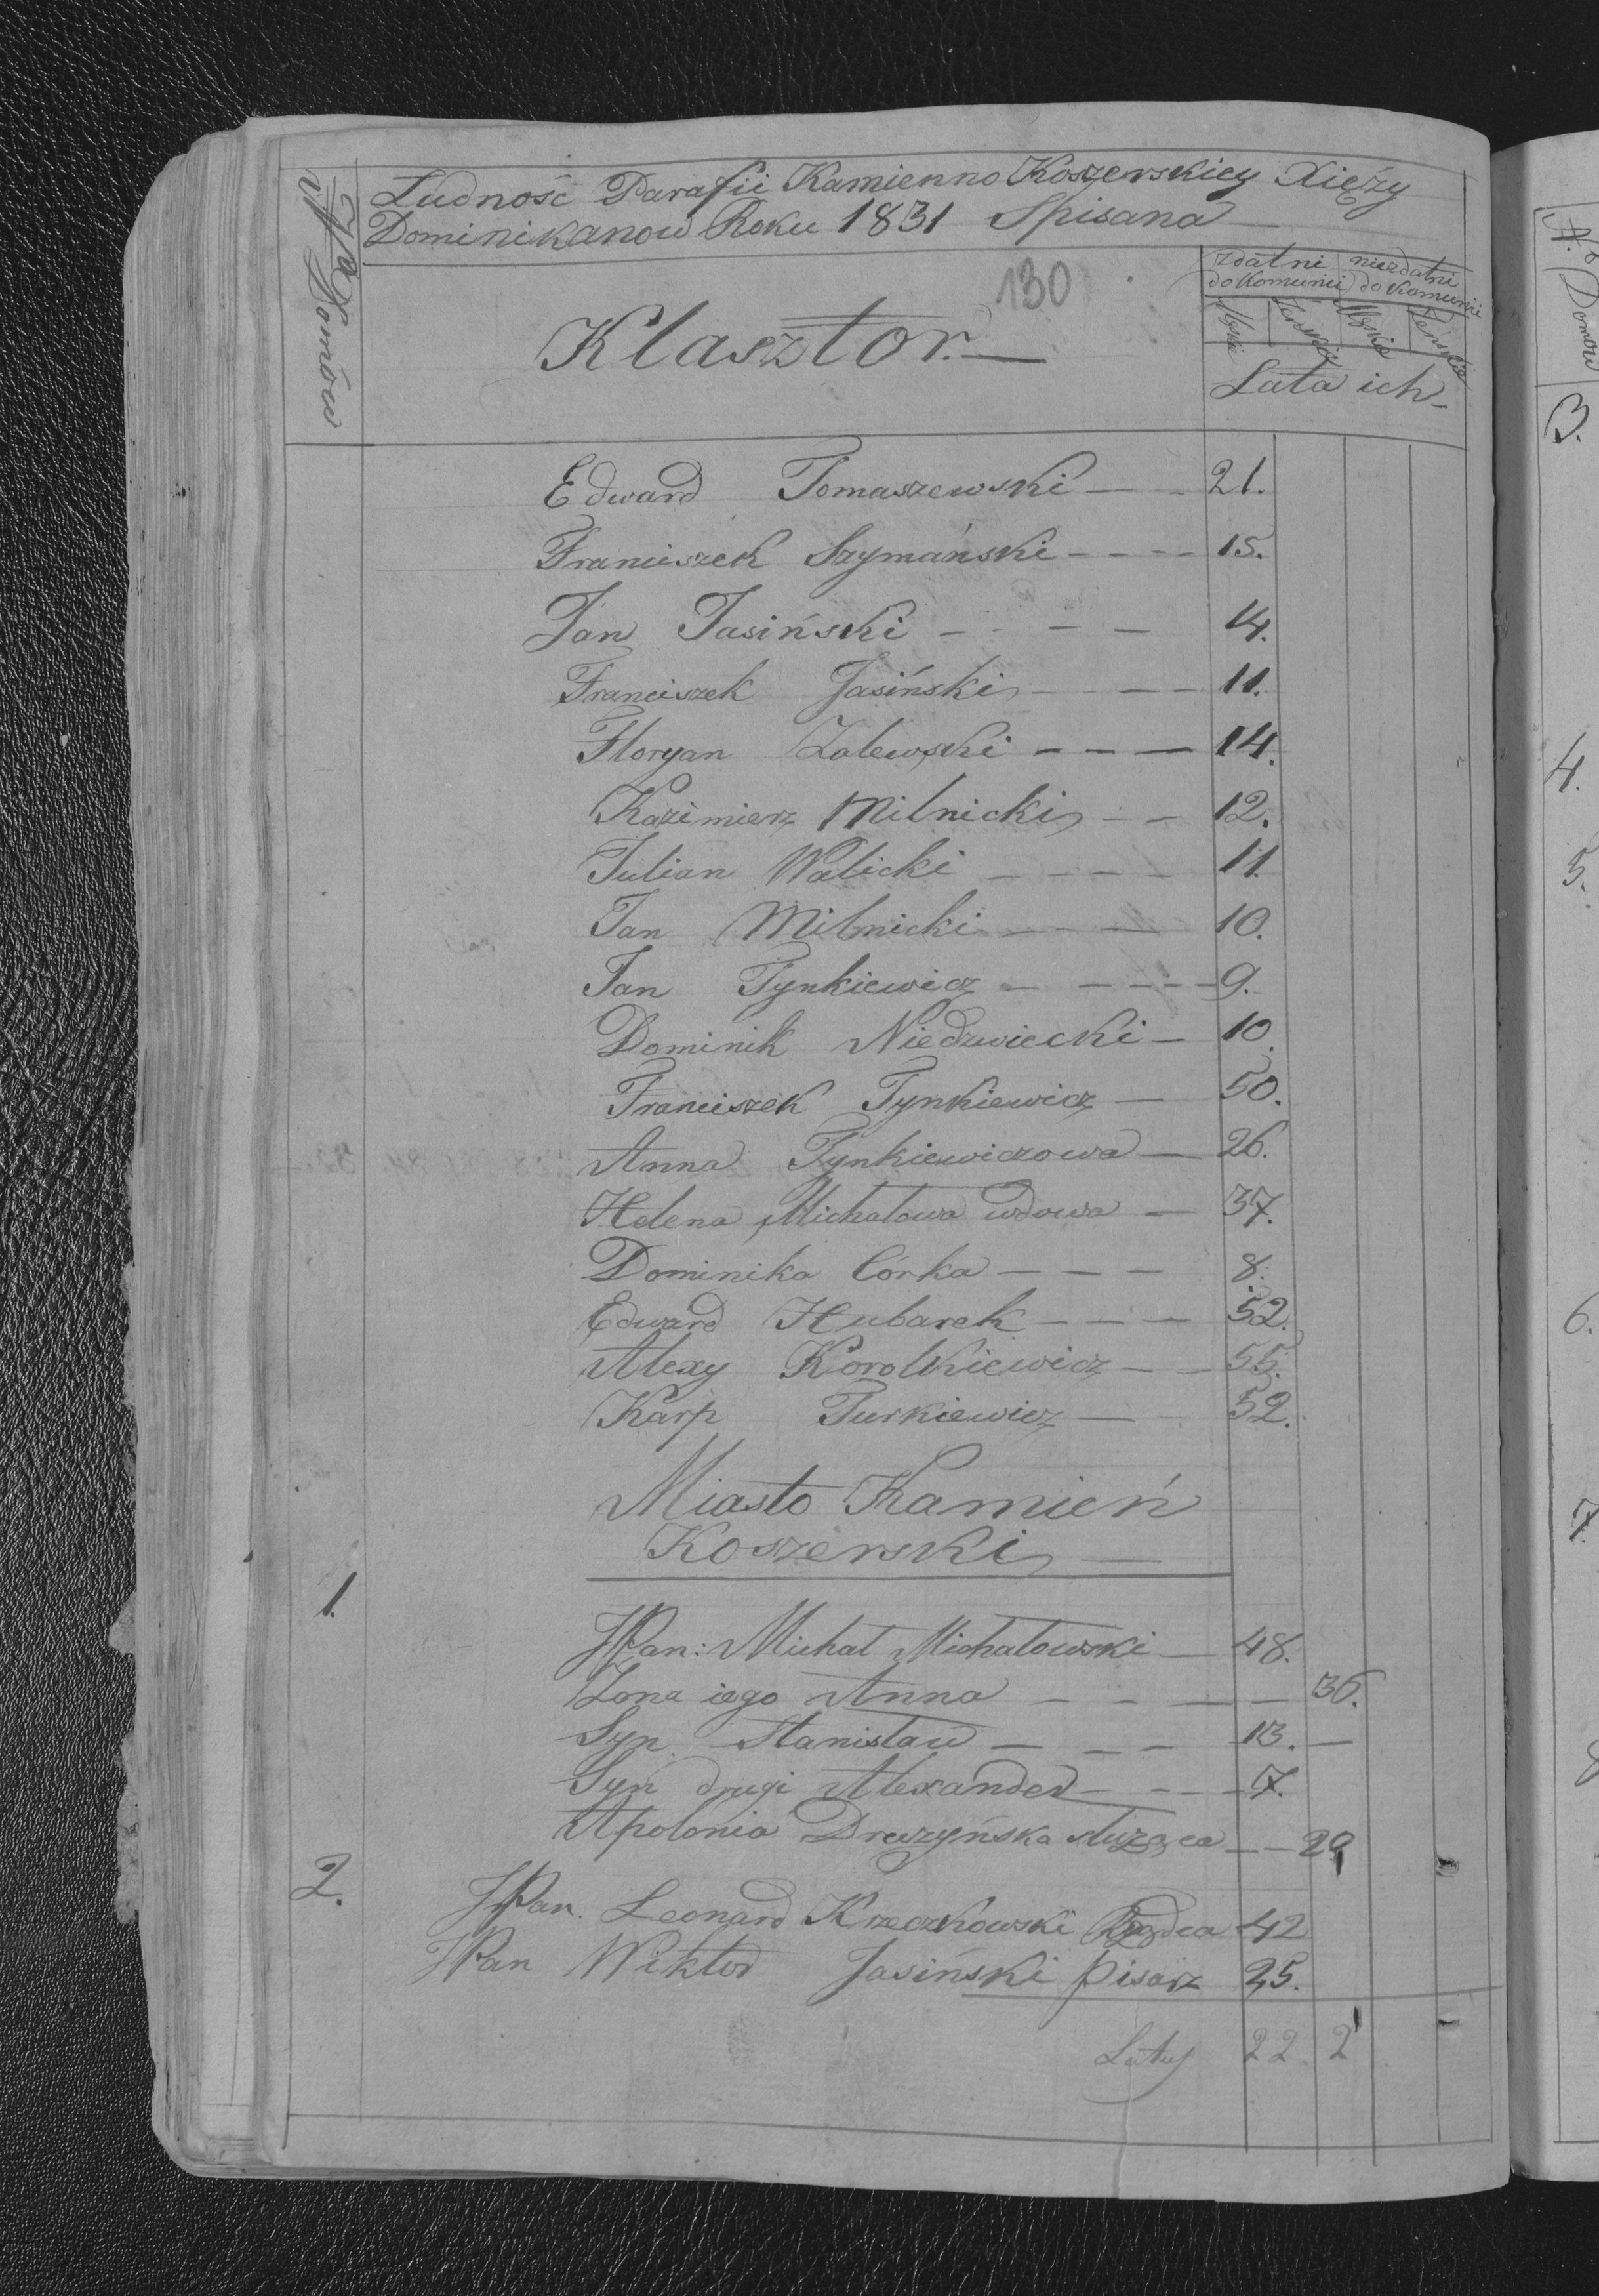 Ludność Parafii Kamienno Koszerskiey Xięży
Dominikanow Roku 1831 Spisana
No Domów
130
Klasztor.
zdatni do Komunii
niezdatni do Komunii
Męskie Żeńskie Męskie Żeńskie
Lata ich
Edward Tomaszewski 21.
Franciszek Szymański 15.
Jan Jasiński 14.
Franciszek Jasiński 11.
Floryan Zalewski 14.
Kazimierz Milnicki 12.
Julian Walicki 11.
Jan Milnicki 10.
Jan Tynkiewicz 9.
Dominik Niedzwiecki 10.
Franciszek Tynkiewicz 50.
Anna Tynkiewiczowa 26.
Helena Michałowa wdowa 37.
Dominika Córka 8.
Edward Hubarek 52.
Alexy Korolkiewicz 55.
Karp Turkiewicz 52.
Miasto Kamień
Koszerski
1.
JPan: Michał Michałowski 48.
Zona iego Anna 36.
Syn Stanisław 13.
Syn drugi Alexander 7.
Apolonia Druzyńska służąca 29
2.
JPan. Leonard Krzeczkowski Rządca 42
JPan Wiktor Jasiński pisarz 25.
Latus 22 2
No Domow
3.
4.
5.
6.
7.